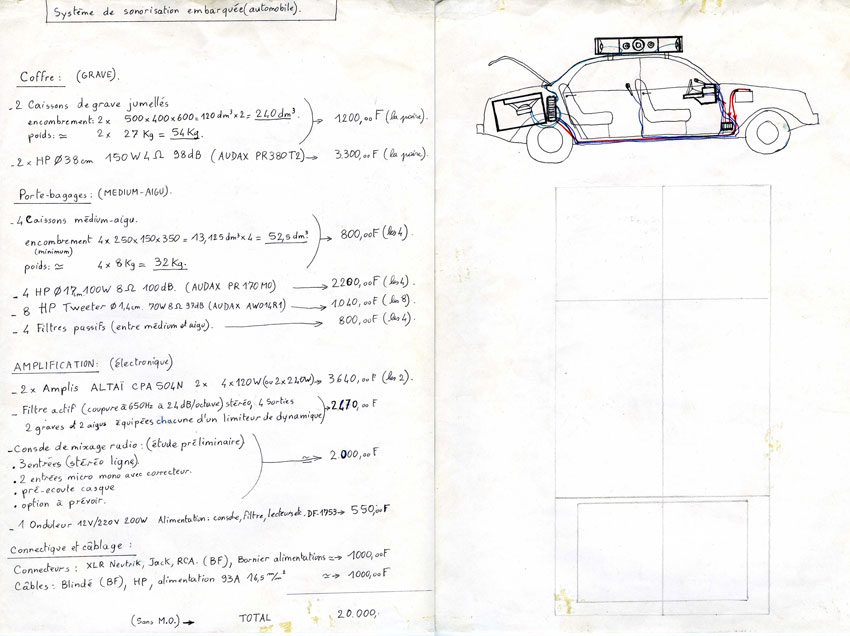 Système de sonorisation embarquée (automobile).
Coffre : (GRAVE).
- 2 Caissons de grave jumellés
encombrement: 2 x 500 x 400 x 600 = 120 dm³ x 2 = 240 dm³
poids: ≃ 2 x 27 Kg = 54 Kg.
→ 1200,00 F (la paire).
- 2 x HP Ø 38 cm 150 W 4 Ω 98 dB (AUDAX PR380T2) → 3.300,00 F (la paire).
Porte-bagages : (MEDIUM-AIGU).
- 4 Caissons médium-aigu.
encombrement 4 x 250 x 150 x 350 = 13,125 dm³ x 4 = 52,5 dm³
(minimum)
poids: ≃ 4 x 8 Kg = 32 Kg.
→ 800,00 F (les 4).
- 4 HP Ø 17cm 100W 8 Ω 100 dB. (AUDAX PR 170 M0) → 2200,00 F (les 4).
- 8 HP Tweeter Ø 1,4 cm. 70W 8 Ω 97dB (AUDAX AW014R1) → 1.040,00 F (les 8).
- 4 Filtres passifs (entre médium et aigu). → 800,00 F (les 4).
AMPLIFICATION: (électronique)
- 2 x Amplis ALTAÏ CPA 504N 2 x 4 x 120W (ou 2 x 240W) → 3640,00 F (les 2).
- Filtre actif (coupure à 650Hz à 24 dB/octave) stéréo, 4 Sorties
2 graves et 2 aigus équipées chacune d'un limiteur de dynamique → 2470,00 F
- Console de mixage radio : (étude préliminaire)
• 3 entrées (stéréo ligne).
• 2 entrées micro mono avec correcteur.
≃ → 2.000,00 F
• pré-ecoute casque
• option à prévoir.
- 1 Onduleur 12V/220V 200W Alimentation : console, filtre, lecteurs etc. DF.1753 → 550,00 F
Connectique et câblage :
Connecteurs : XLR Neutrik, Jack, RCA. (BF), Bornier alimentations ≃ → 1000,00 F
Câbles : Blindé (BF), HP, alimentation 93A 16,5 m/m² ≃ → 1000,00 F
(Sans M.O.) → TOTAL 20.000,-